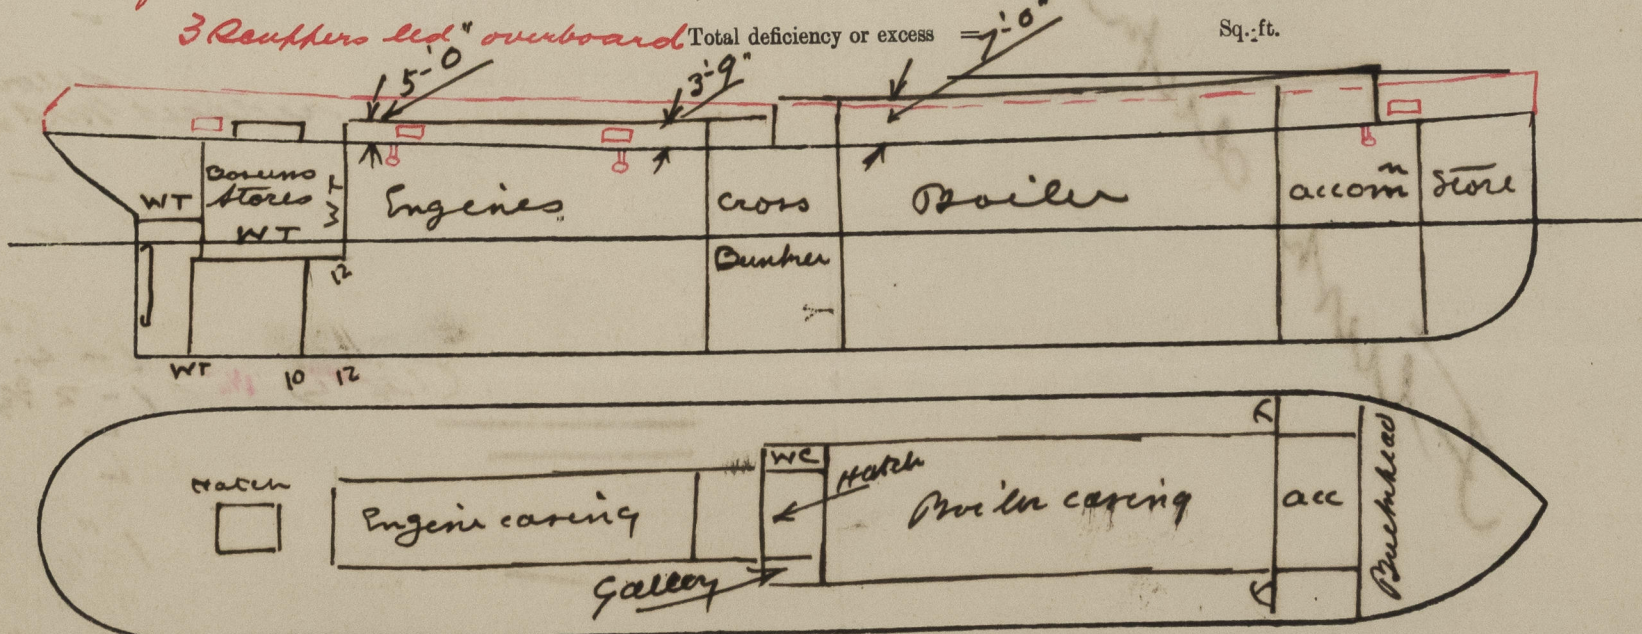 3 Scuppers led" overboard Total deficiency or excess = 7'-0" Sq. ft.
5'-0"
3'-9"
WT
Bosuns
Stores
WT
WT
Engines
Cross
Bunker
Boiler
accomn
Store
12
WT
10
12
Hatch
Engine casing
WC
Hatch
Galley
Boiler casing
acc
Bulkhead